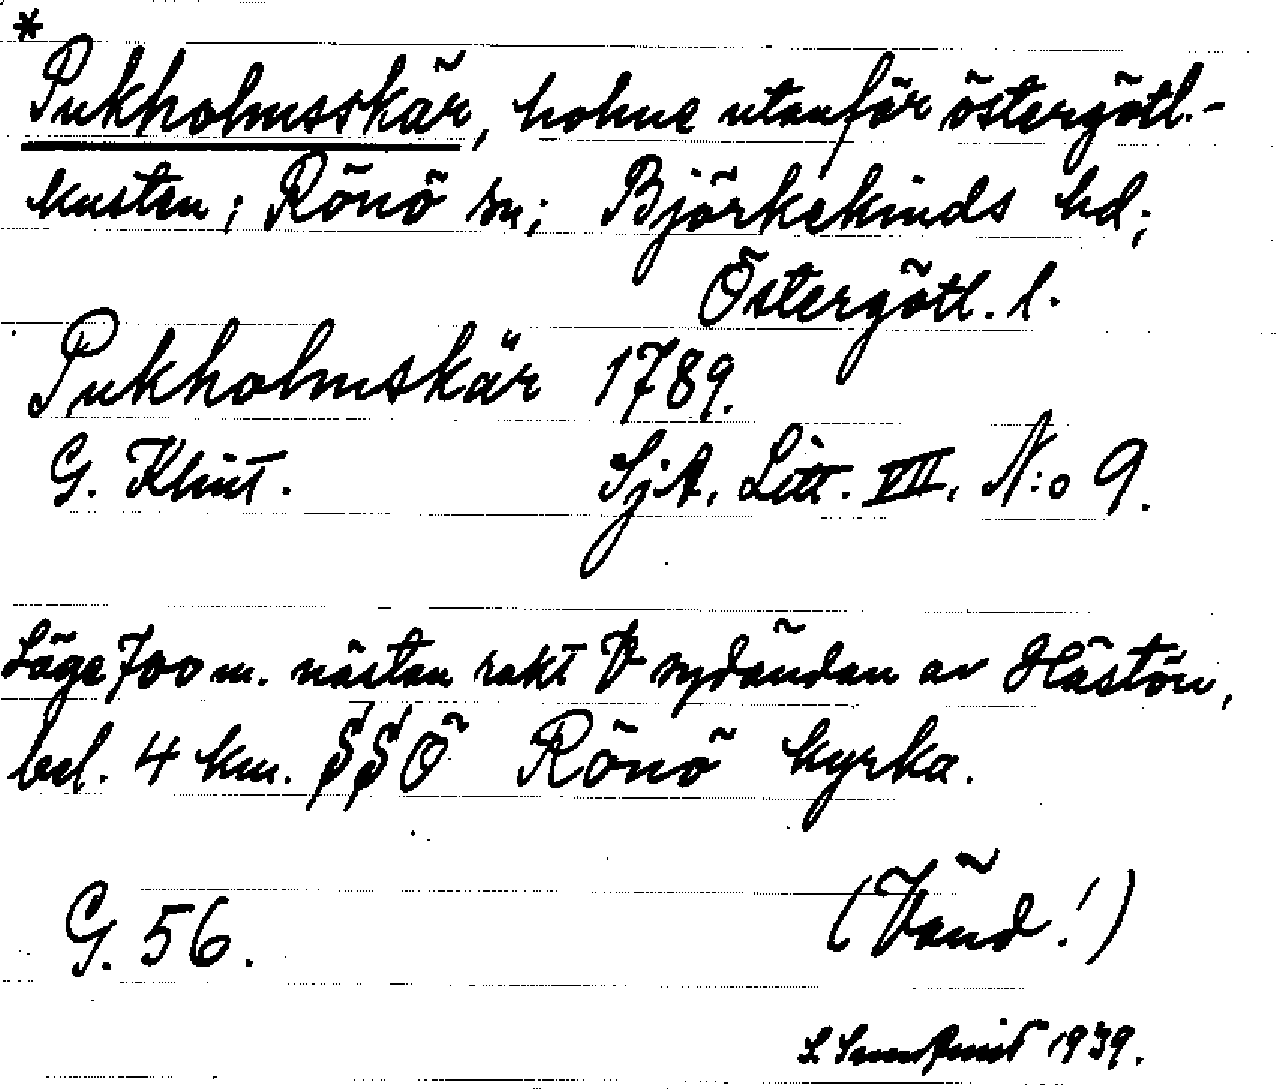 *
Pukholmsskär, holme utanför östergötl.-
kusten; Rönö sn; Björkekinds hd;
Östergötl. l.
Pukholmskär 1789.
G. Klint. SjA, Litt. VII, N:o 9.
Läge 700 m. nästan rakt V sydändan av Hästön,
bel. 4 km. SSÖ Rönö kyrka.
G. 56. (Vänd!)
1939.